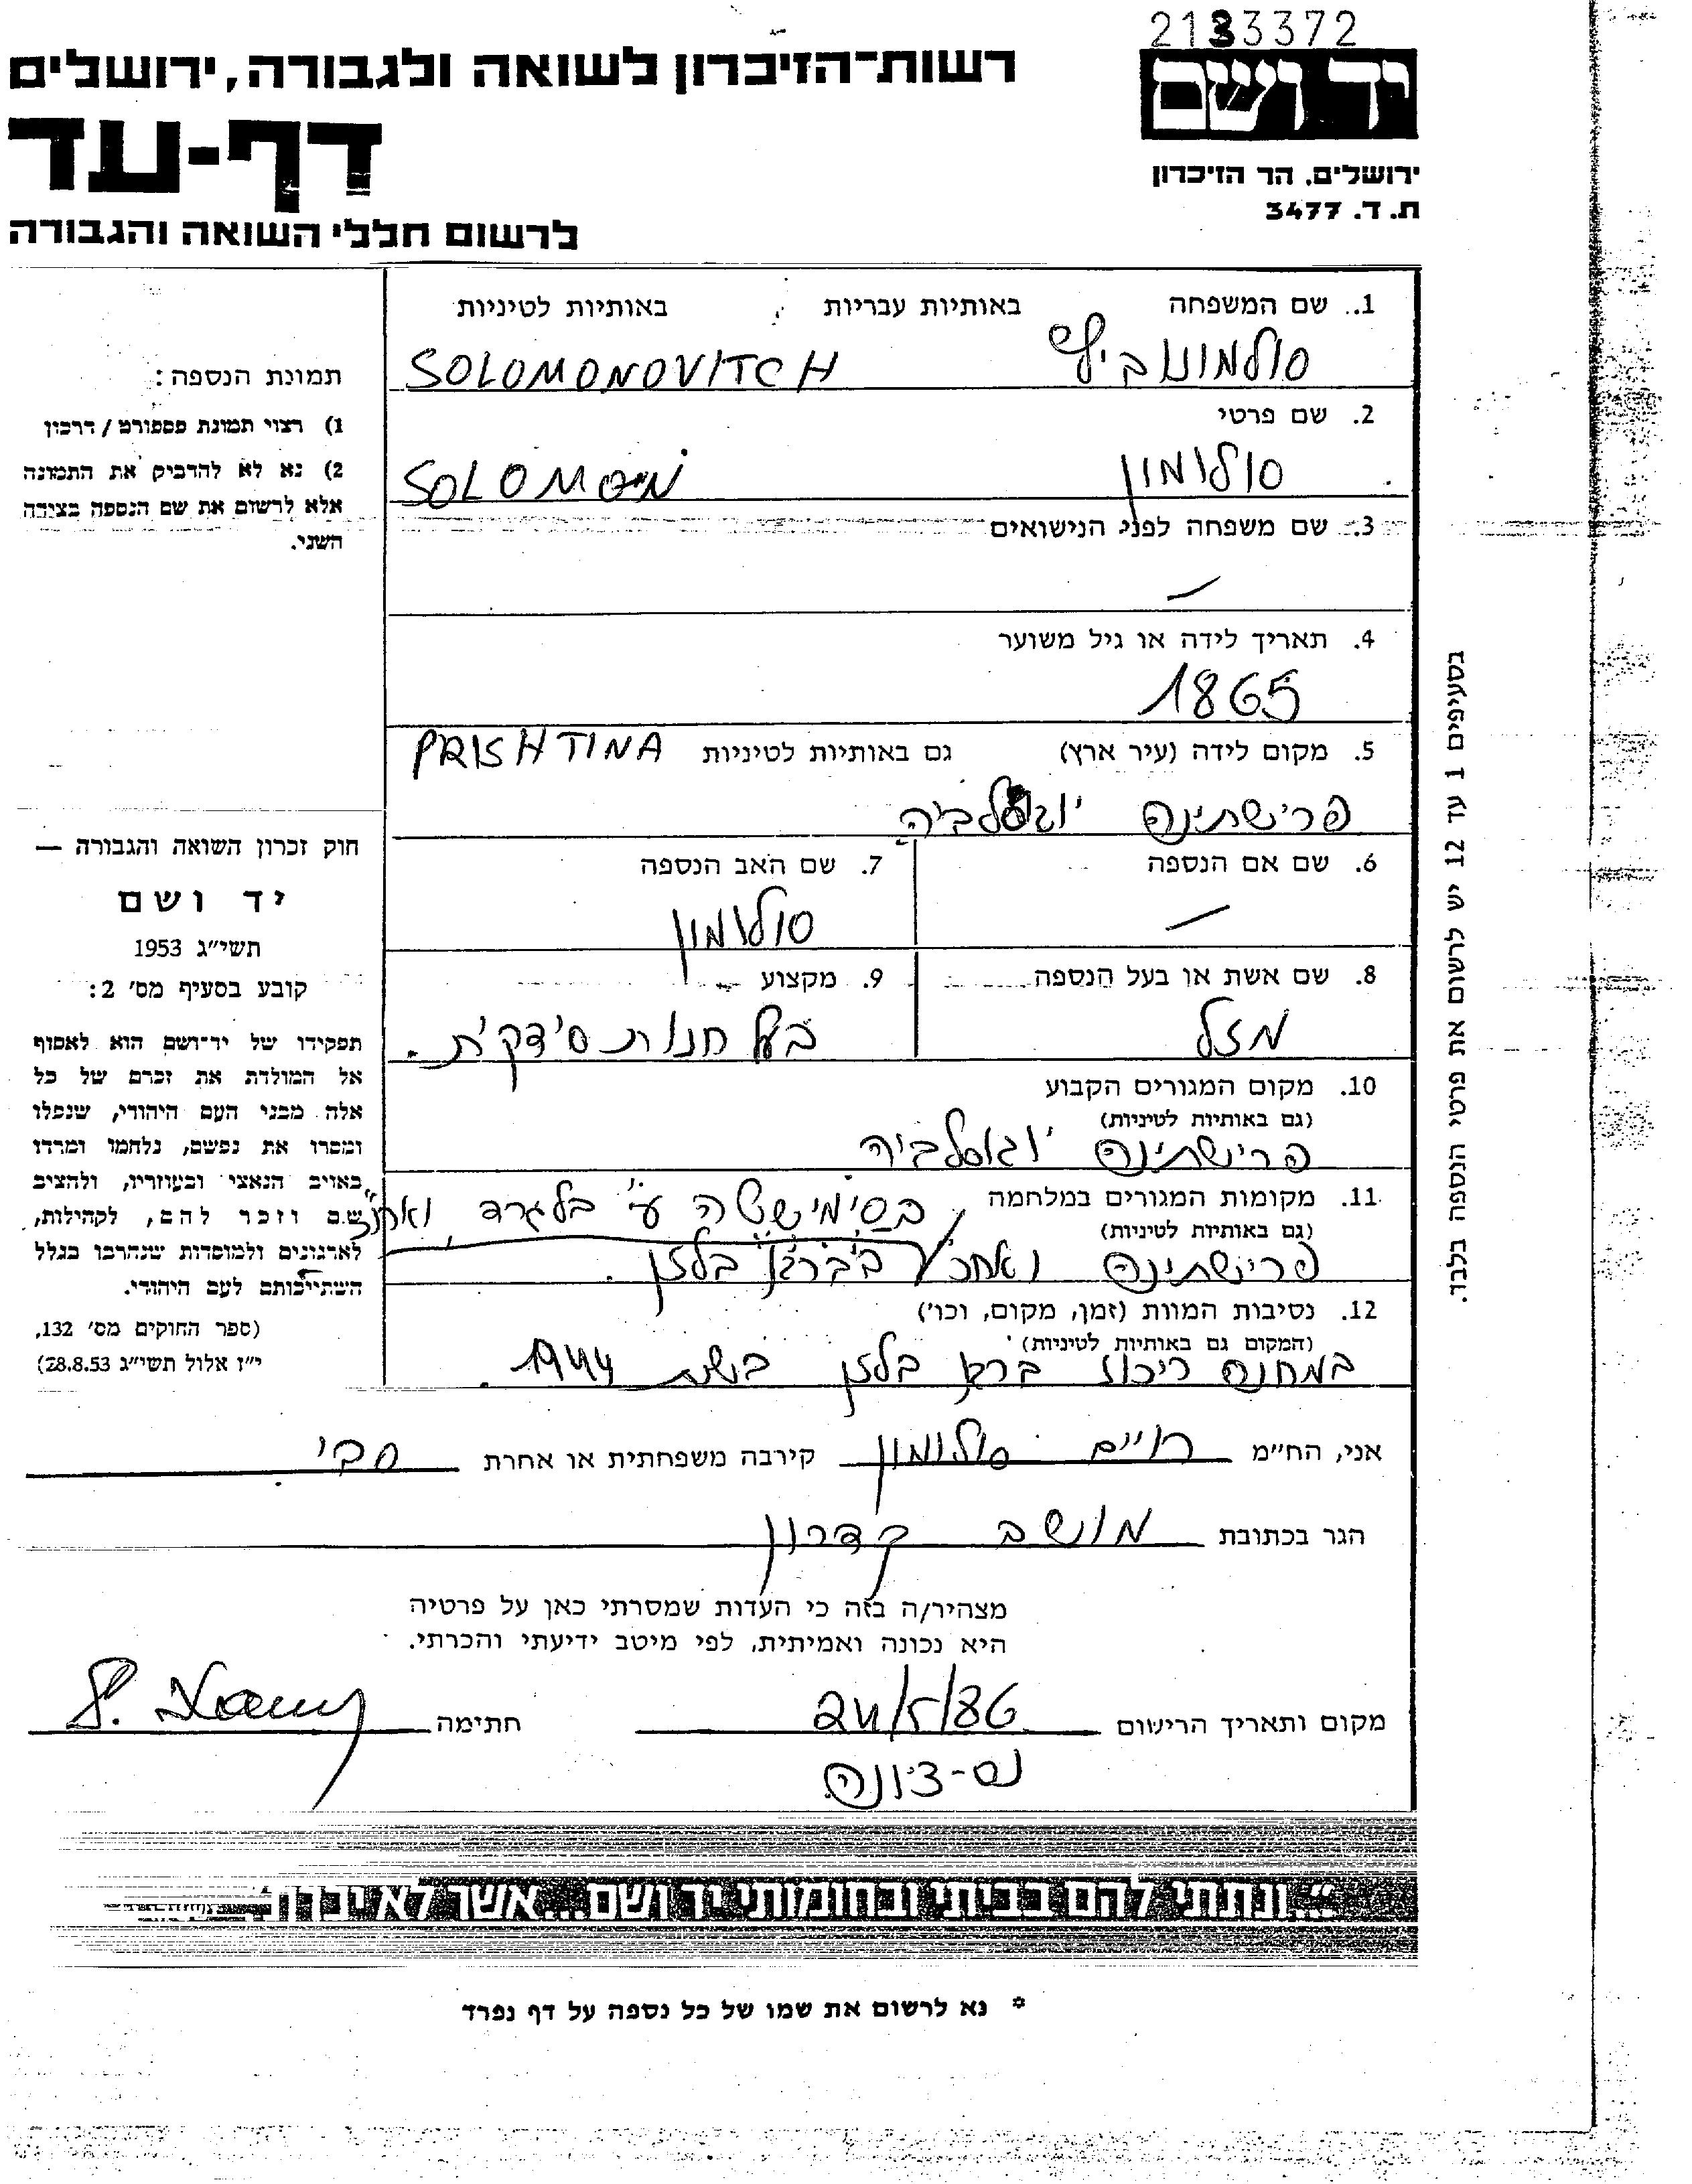 2133372
יד ושם
ירושלים. הר הזיכרון
ת. ד. 3477
רשות־הזיכרון לשואה ולגבורה, ירושלים
דף-עד
לרשום חללי השואה והגבורה
1. שם המשפחה באותיות עבריות באותיות לטיניות
סולמונוביץ SOLOMONOVITCH
2. שם פרטי
סולומון SOLOMON
3. שם משפחה לפני הנישואים
—
4. תאריך לידה או גיל משוער
1865
5. מקום לידה (עיר ארץ) גם באותיות לטיניות PRISHTINA
פרישתינה יוגוסלביה
6. שם אם הנספה 7. שם האב הנספה
— סולומון
8. שם אשת או בעל הנספה 9. מקצוע
מזל בעל חנות סידקית.
10. מקום המגורים הקבוע
(גם באותיות לטיניות)
פרישתינה יוגוסלביה
11. מקומות המגורים במלחמה
בסימישטה ע"י בלגרד
(גם באותיות לטיניות)
פרישתינה ואח"כ בברגן בלזן.
12. נסיבות המוות (זמן, מקום, וכו')
(המקום גם באותיות לטיניות)
במחנה ריכוז ברגן בלזן בשנת 1944.
תמונת הנספה:
1) רצוי תמונת פספורט / דרכון
2) נא לא להדביק את התמונה
אלא לרשום את שם הנספה בצידה
השני.
חוק זכרון השואה והגבורה —
יד ושם
תשי״ג 1953
קובע בסעיף מס׳ 2:
תפקידו של יד־ושם הוא לאסוף
אל המולדת את זכרם של כל
אלה מבני העם היהודי, שנפלו
ומסרו את נפשם, נלחמו ומרדו
באויב הנאצי ובעוזריו, ולהציב
שם וזכר להם, לקהילות,
לארגונים ולמוסדות שנחרבו בגלל
השתייכותם לעם היהודי.
(ספר החוקים מס׳ 132,
י״ז אלול תשי״ג 28.8.53)
בסעיפים 1 עד 12 יש לרשום את פרטי הנספה בלבד.
אני, הח״מ חיים סולומון קירבה משפחתית או אחרת סבי
הגר בכתובת מושב קדרון
מצהיר/ה בזה כי העדות שמסרתי כאן על פרטיה
היא נכונה ואמיתית, לפי מיטב ידיעתי והכרתי.
מקום ותאריך הרישום 24/5/86 חתימה
נס-ציונה
״...ונתתי להם בביתי ובחומותי יד ושם...אשר לא יכרת״
* נא לרשום את שמו של כל נספה על דף נפרד